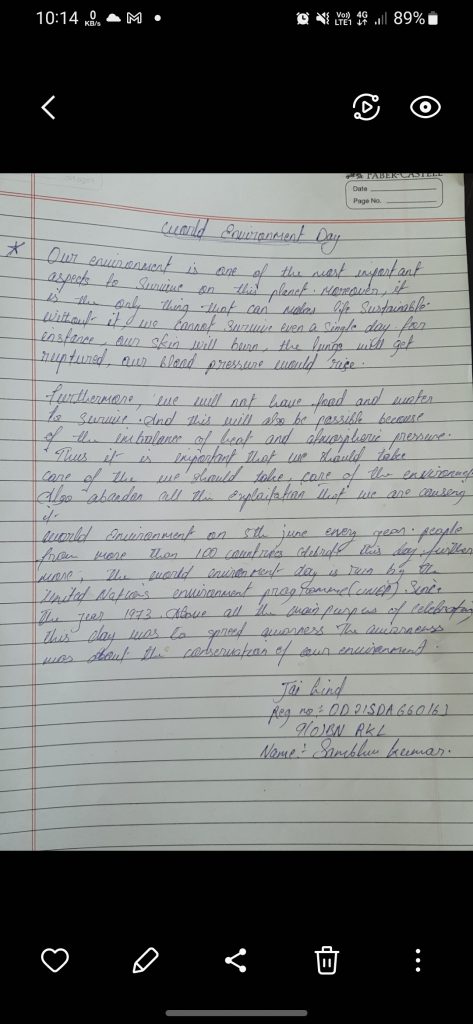 10:14 0 KB/s M Vo)) LTE1 4G 89%
FABER-CASTELL
Date
Page No.
World Environment Day
Our environment is one of the most important
aspects to Survive on this planet. Moreover, it
is the only thing that can makes life Sustainable.
without it, we cannot survive even a single day for
instance, our skin will burn, the lungs will get
ruptured, our blood pressure would rise.
furthermore, we will not have food and water
to survive. And this will also be possible because
of the imbalance of heat and atmospheric pressure.
Thus it is important that we should take
care of the we should take, care of the environment
Also abandon all the exploitation that we are causing
it.
world Environment on 5th june every year. people
from more than 100 countries celebrate this day. further
more, the world environment day is run by the
United Nations environment programme (unep). Since
the year 1973 Above all the main purpos of celebrating
this day was to spread awarness The awarness
was about the conservation of our environment.
Jai hind
Reg no:- OD21SDA660163
9(O)BN RKL
Name:- kumar.